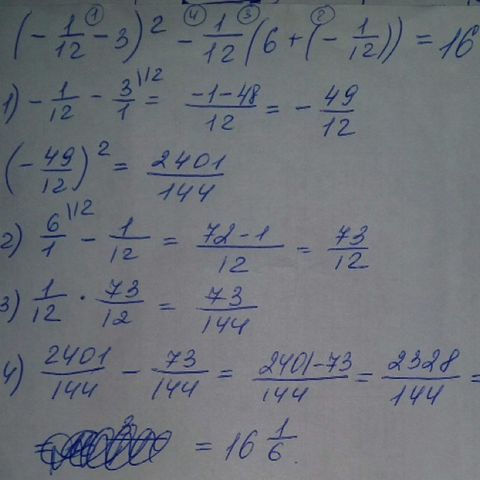 ① ④ ③ ②
(-1/12 - 3)² - 1/12 (6 + (-1/12)) = 16
1) -1/12 - 3/1 \12 = -1-48/12 = -49/12
(-49/12)² = 2401/144
2) 6/1 \12 - 1/12 = 72-1/12 = 73/12
3) 1/12 · 73/12 = 73/144
4) 2401/144 - 73/144 = 2401-73/144 = 2328/144 =
= = 16 1/6.